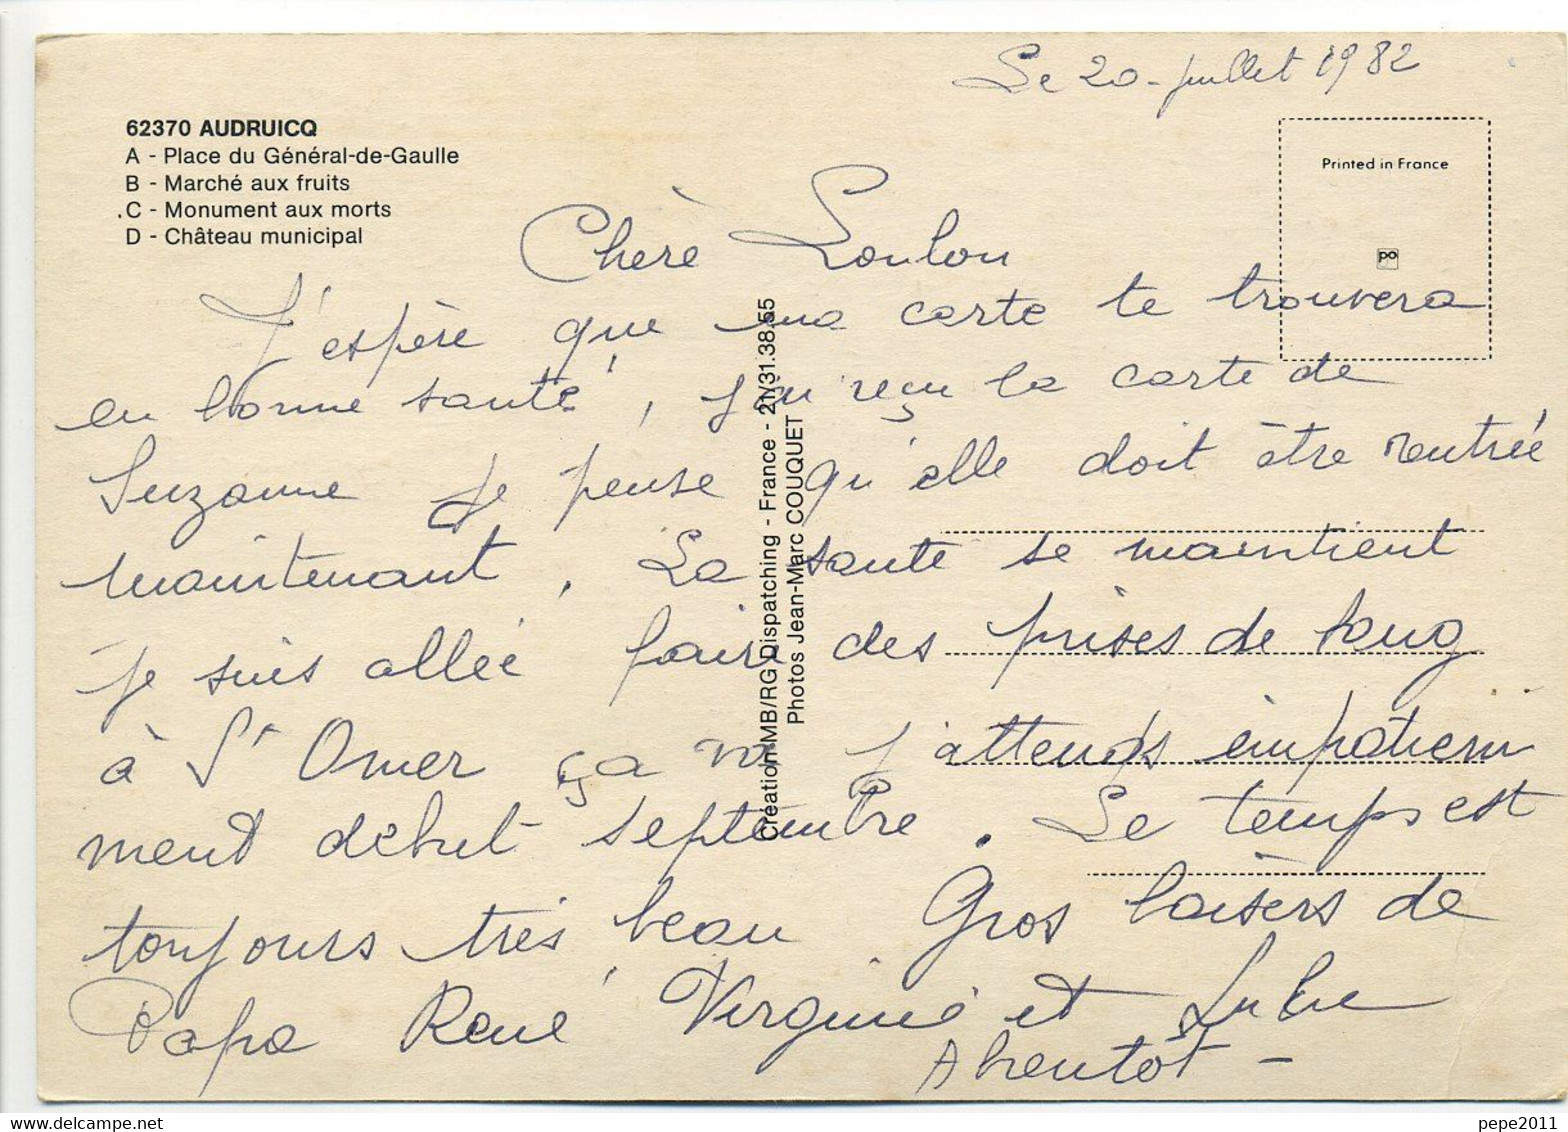 Le 20 juillet 1982
62370 AUDRUICQ
A - Place du Général-de-Gaulle
B - Marché aux fruits
C - Monument aux morts
D - Château municipal
Printed in France
po
Chère Loulou
J'espère que ma carte te trouvera
en bonne santé, j'ai reçu la carte de
Suzanne je pense qu'elle doit être rentrée
maintenant. La santé se maintient
je suis allée faire des prises de sang
à St Omer ça va j'attends impatiem
ment début septembre. Le temps est
toujours très beau Gros baisers de
Papa René Virginie et
A bientôt -
Création MB/RG Dispatching - France - 21/31.38.55
Photos Jean-Marc COUQUET
pepe2011